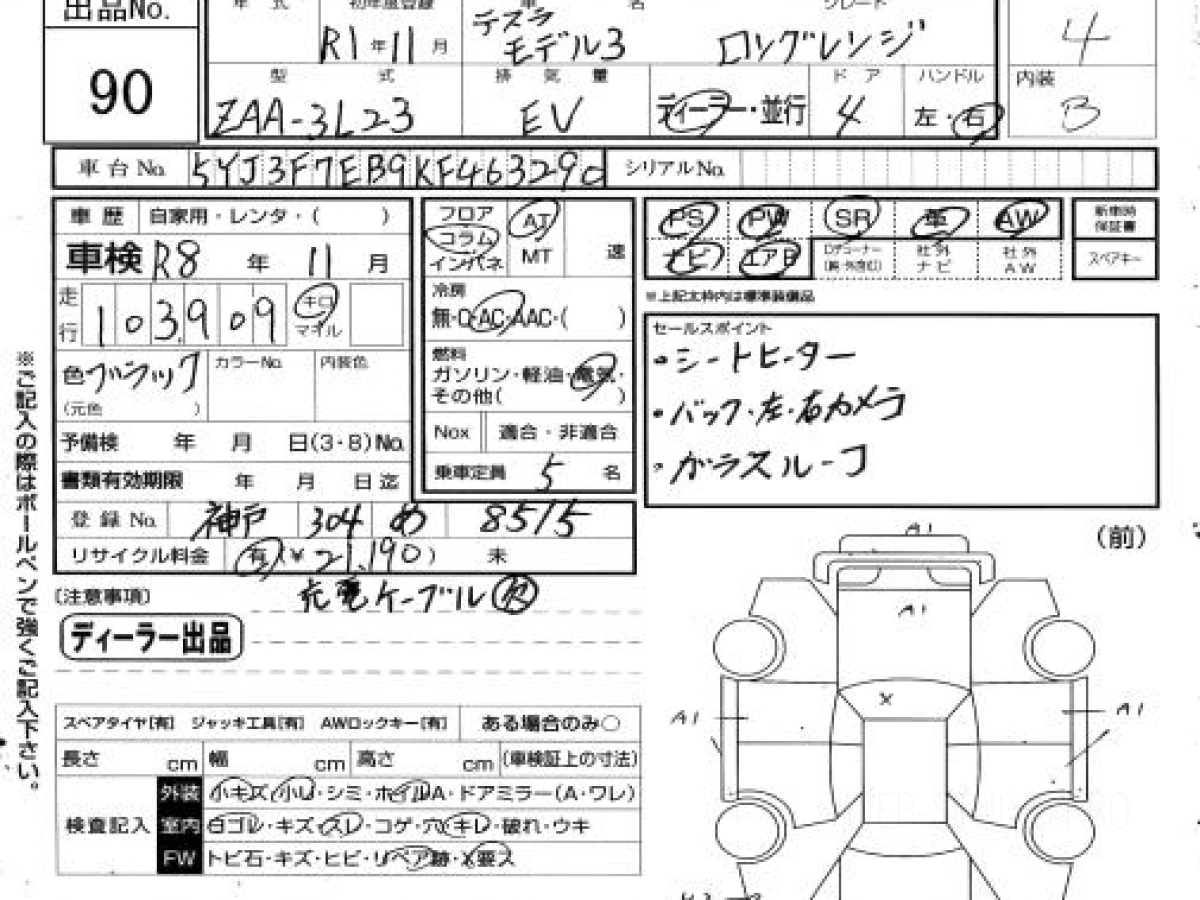 出品No.
90
年 式 初年度登録 車 名 グレード
R1年11月 テスラ モデル3 ロングレンジ 4
型 式 排 気 量 ド ア ハンドル 内装
ZAA-3L23 EV ディーラー・並行 4 左・右 B
車台No. 5YJ3F7EB9KF463290 シリアルNo.
車 歴 自家用・レンタ・( )
車検 R8 年 11 月
走行 103,909 キロ マイル
色 ブラック カラーNo. 内装色
(元色 )
予備検 年 月 日(3・8)No.
書類有効期限 年 月 日迄
登 録 No. 神戸 304 め 8515
リサイクル料金 有(¥21,190) 未
フロア コラム インパネ
AT MT 速
冷房
無・C・AC・AAC・( )
燃料
ガソリン・軽油・電気・
その他( )
Nox 適合・非適合
乗車定員 5 名
PS PW SR 革 AW
新車時保証書
ナビ エアB
社外ナビ 社外AW
スペアキー
※上記太枠内は標準装備品
セールスポイント
・シートヒーター
・バック・左・右カメラ
・ガラスルーフ
※ご記入の際はボールペンで強くご記入下さい。
(注意事項) 充電ケーブル欠
ディーラー出品
スペアタイヤ[有] ジャッキ工具[有] AWロックキー[有] ある場合のみ○
長さ cm 幅 cm 高さ cm (車検証上の寸法)
検査記入
外装 小キズ・小U・シミ・ホイルA・ドアミラー(A・ワレ)
室内 白ゴレ・キズ・スレ・コゲ・穴・キレ・破れ・ウキ
FW トビ石・キズ・ヒビ・リペア跡・X要ス
(前)
A1
A1
X
A1
A1